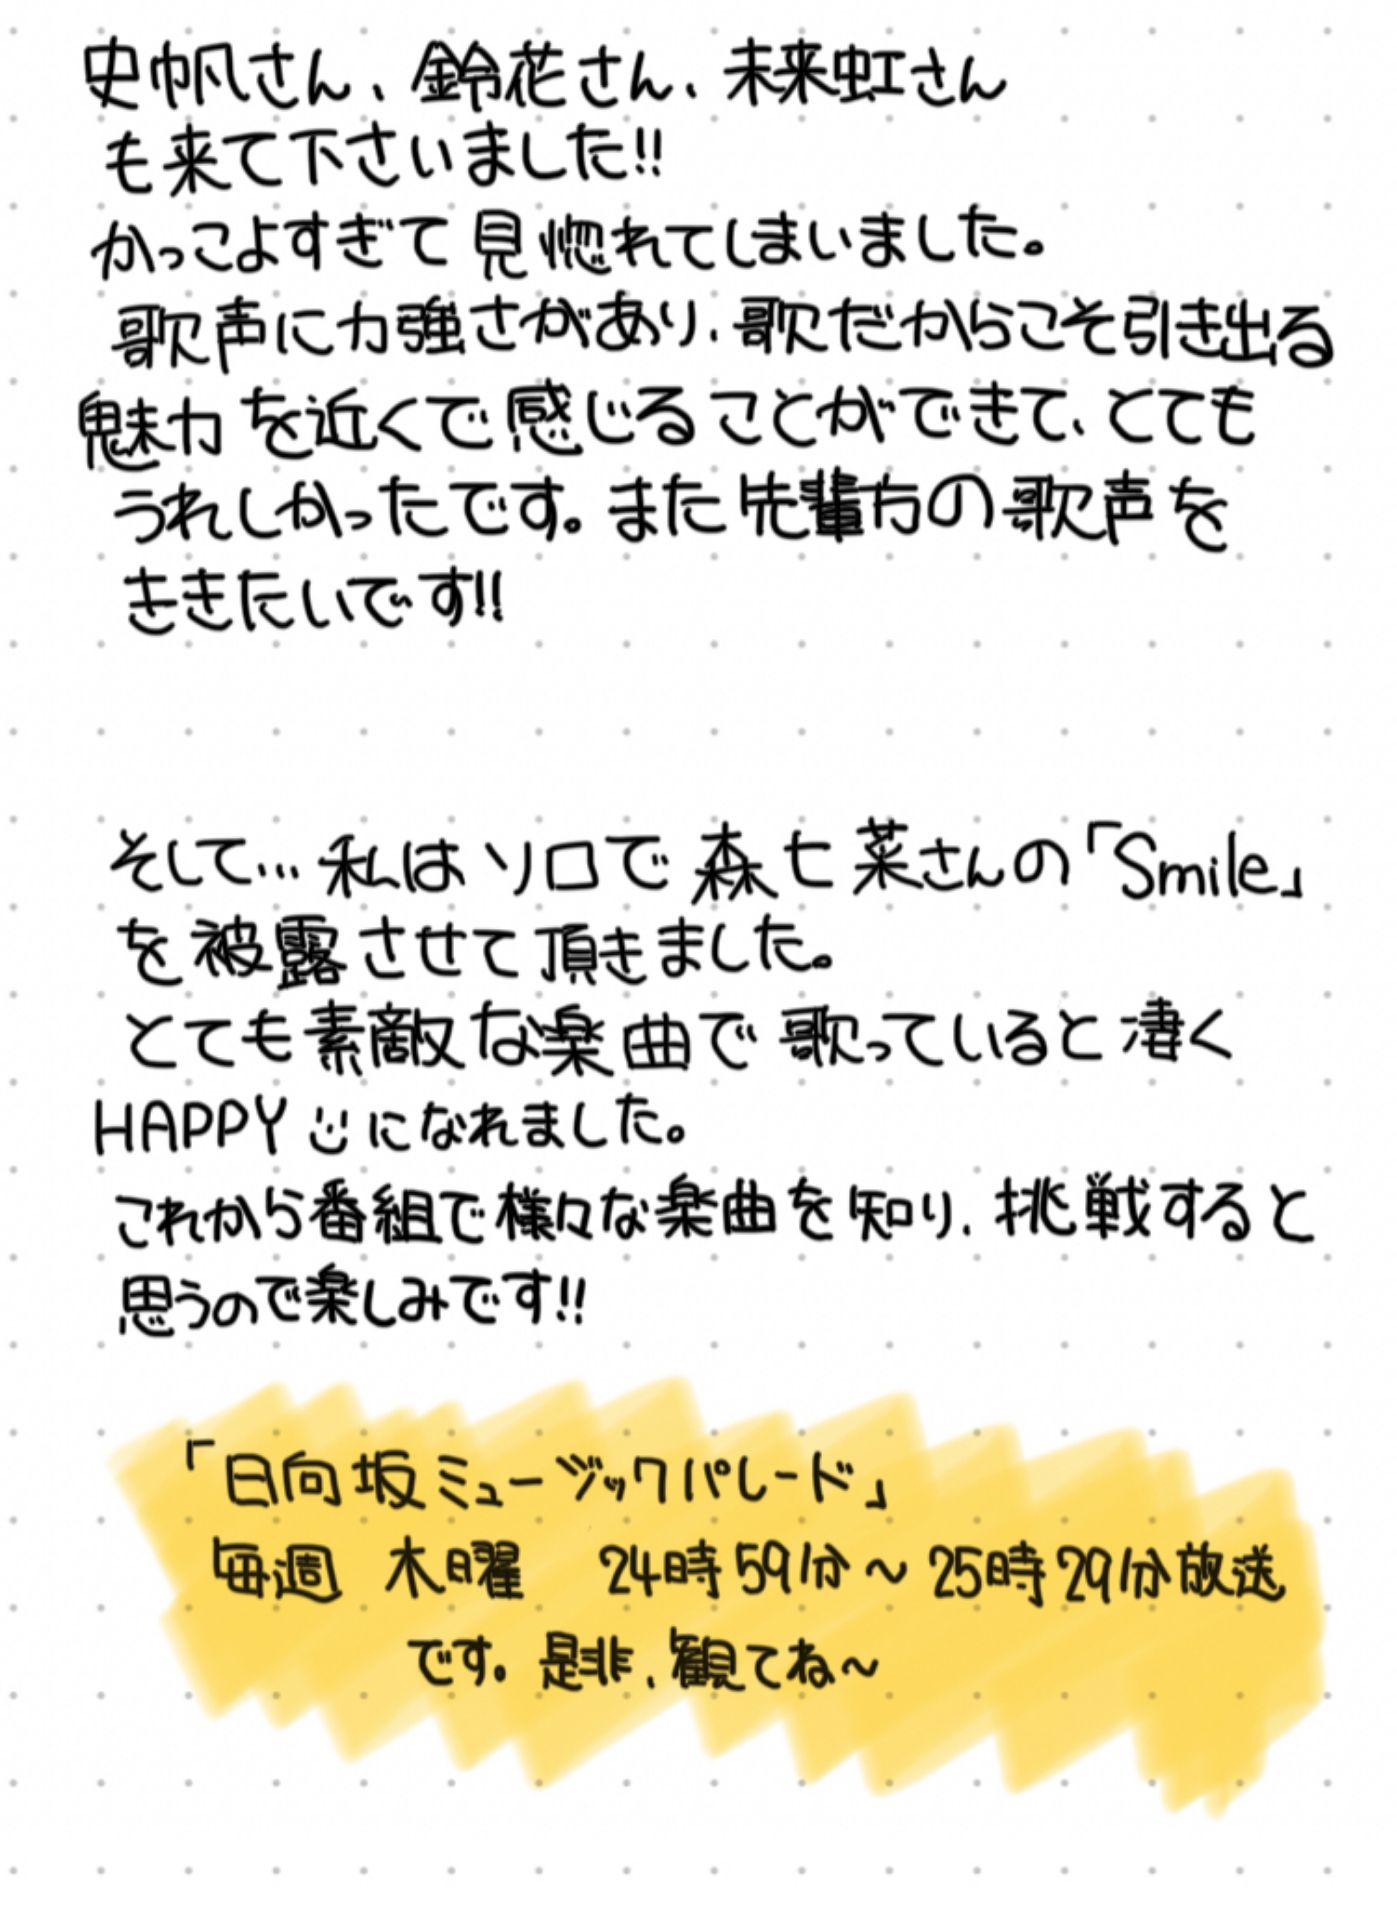 史帆さん、鈴花さん、未来虹さん
も来て下さいました!!
かっこよすぎて見惚れてしまいました。
歌声に力強さがあり、歌だからこそ引き出る
魅力を近くで感じることができて、とても
うれしかったです。また先輩方の歌声を
ききたいです!!
そして…私はソロで森七菜さんの「Smile」
を披露させて頂きました。
とても素敵な楽曲で歌っていると凄く
HAPPY になれました。
これから番組で様々な楽曲を知り、挑戦すると
思うので楽しみです!!
「日向坂ミュージックパレード」
毎週 木曜 24時59分～25時29分放送
です。是非、観てね～